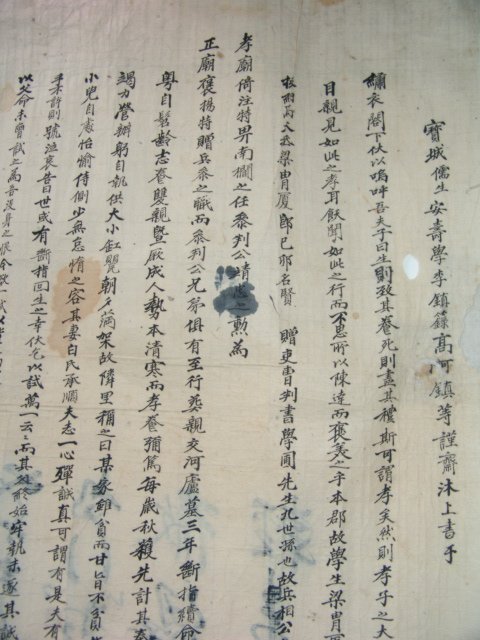 寶城儒生安壽學李鎮籙高河鎮等謹齋沐上書于
繡衣閤下伏以嗚呼吾夫子曰生則致其養死則盡其禮斯可謂孝矣然則孝乎之夫
目覩見如此之孝耳飫聞如此之行而不思所以陳達而褒美之乎本郡故學生梁胄
梁胄厦卽已邢名賢 贈吏曹判書學圃先生九世孫也故兵相公
孝廟倚注特畀南閫之任參判公靖 之勳爲
正廟褒揚特贈兵參之職而參判公兄弟俱有至行葬親交河廬墓三年斷指續命
粤自髫齡志養雙親曁厥成人勢本清寒而孝養彌篤每歲秋穫先計其
竭力營辦躬自執供大小缸甖朝夕滿架故隣里稱之曰某家雖貧而甘旨不貧
小兒自處怡愉侍側少無怠惰之容其妻白氏承順夫志一心殫誠真可謂有是夫有
乎未許則號泣哀告曰世或有斷指回生之幸伏乞以試萬一云云而其父終始牢執未遂其誠
以父命未曾試之爲吾沒身之恨